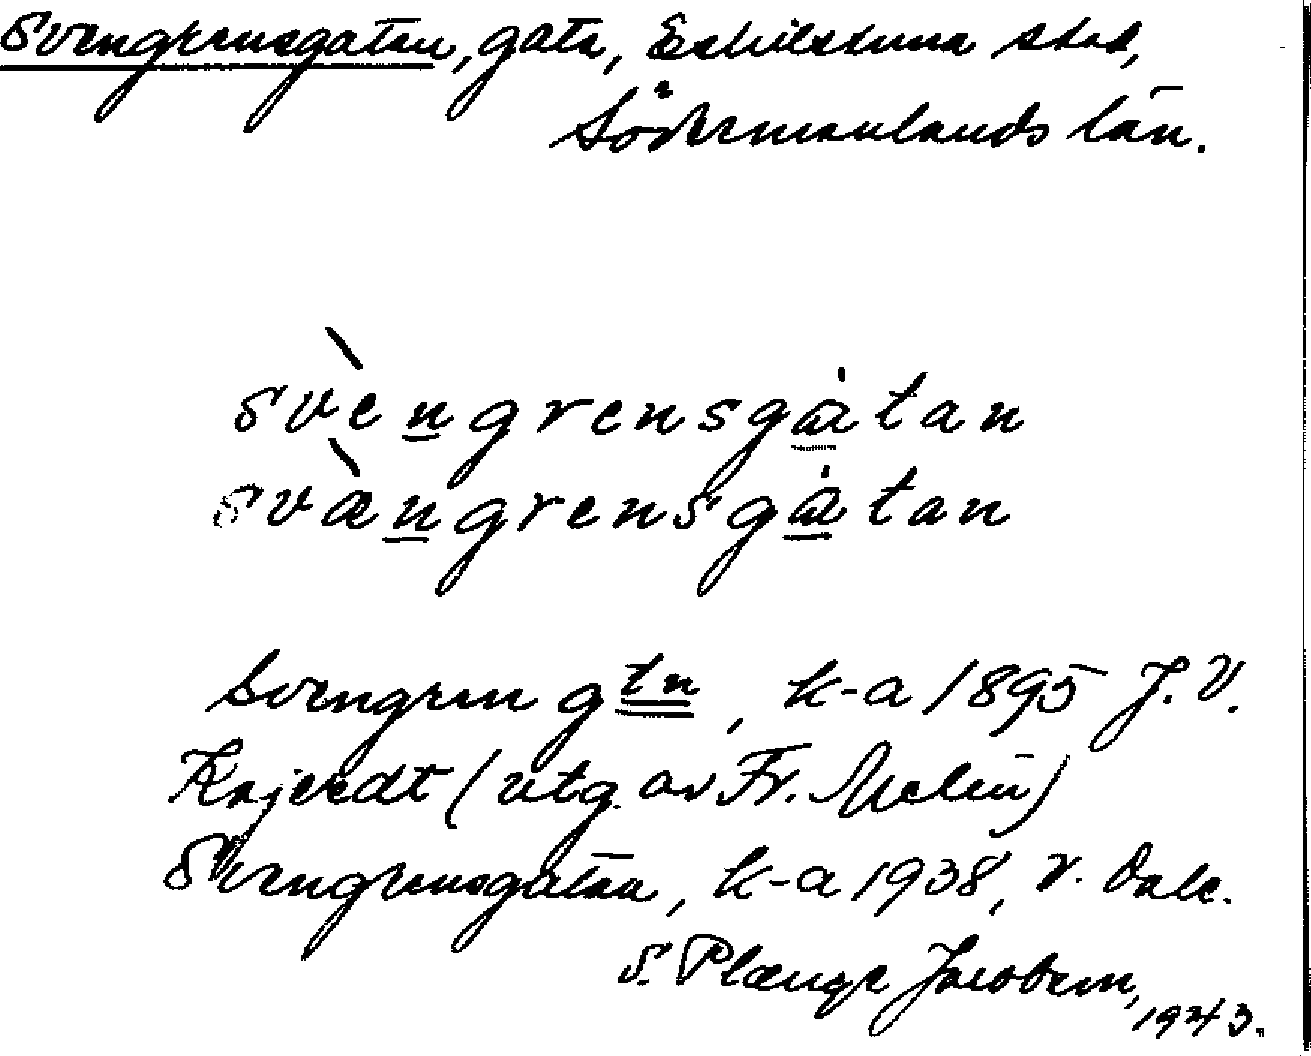 Svengrensgatan, gata, Eskilstuna stad,
Södermanlands län.
svèngrensgatan
svæ̀ngrensgatan
Svengren gtn, k-a 1895 J. V.
(utg. av Fr. Melin)
Svengrensgatan, k-a 1938, r. Dale.
S. Plænge Jacobson,
1943.